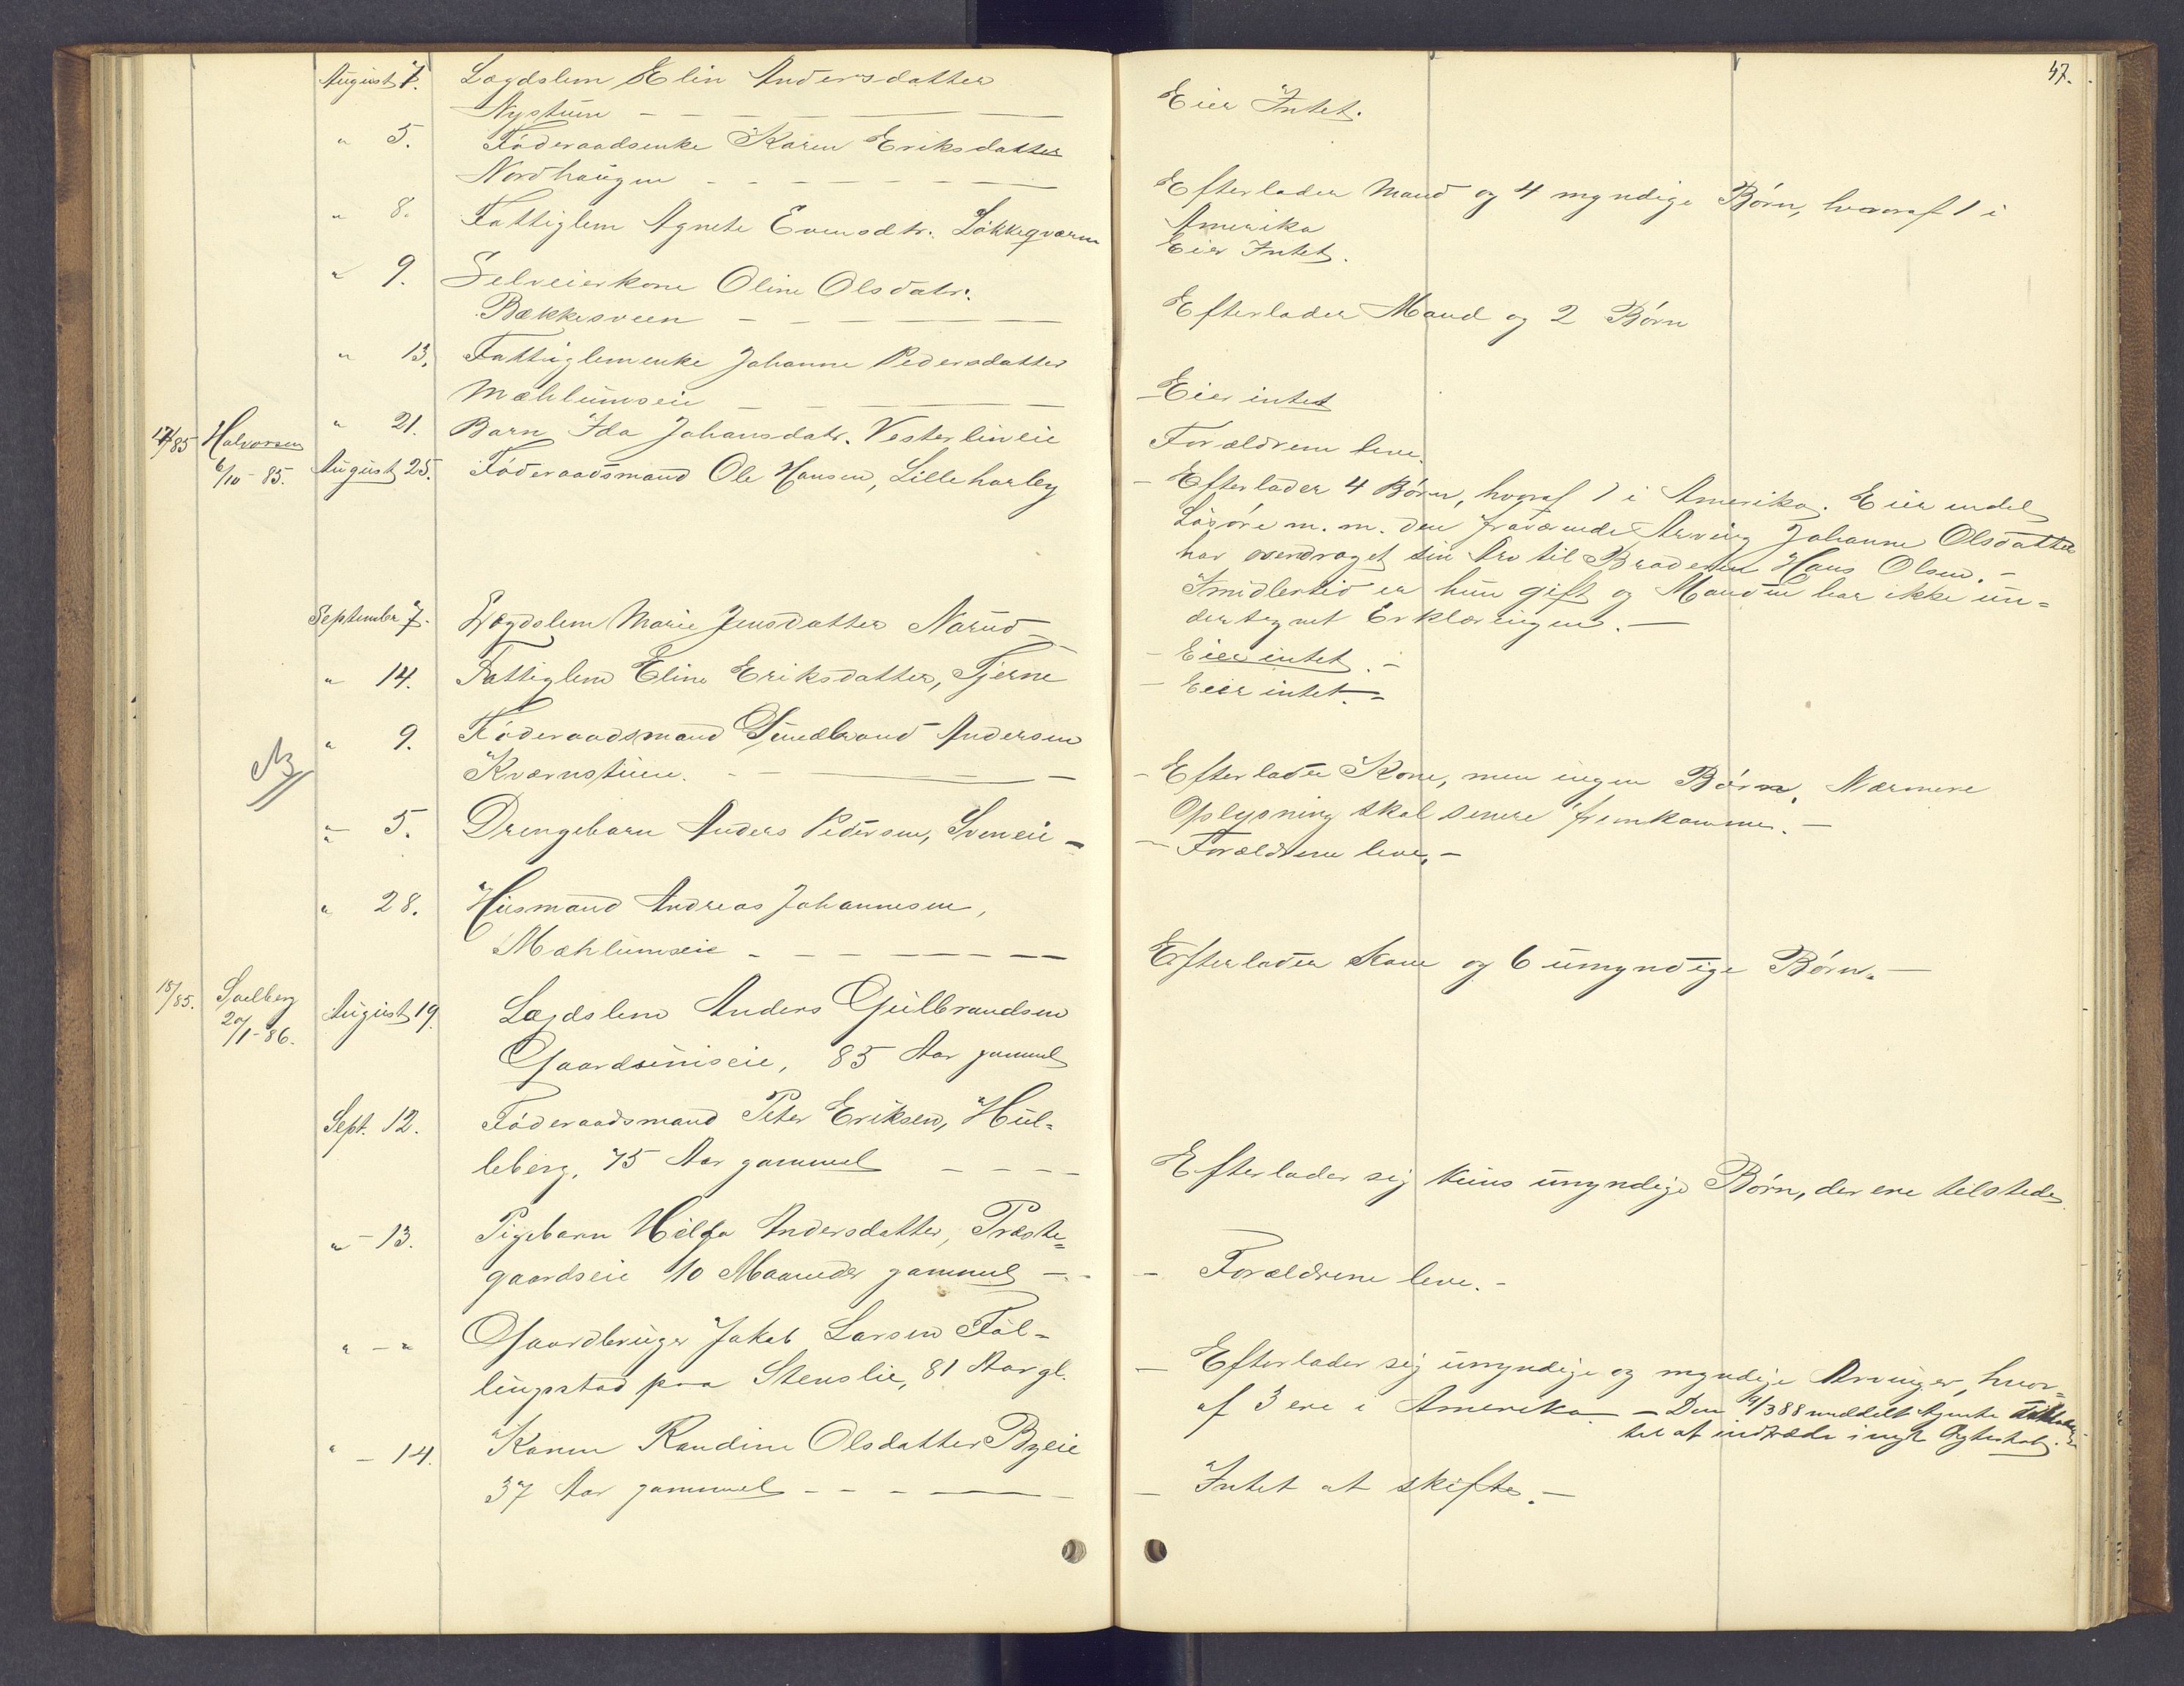 47.
August 7. Lægdslem Elin Andersdatter
Nystuen
Eier Intet.
" 5. Föderaadsenke Karen Eriksdatter
Nordhaugen
Efterlader Mand og 4 myndige Børn, hvoraf 1 i
Amerika
" 8. Fattiglem Agnete Evensdtr. Løkkeqværn
Eier Intet.
" 9. Selveierkone Oline Olsdatr.
Bækkesveen
Efterlader Mand og 2 Børn
" 13. Fattiglemenke Johanne Pedersdatter
Mæhlumseie
Eier intet
17/85 Halvorsen " 21. Barn Ida Johansdatr. Vesterlineie
Forældrene leve.
6/10-85. August 25. Föderaadsmand Ole Hansen, Lilleharley
- Efterlader 4 Børn, hvoraf 1 i Amerika. Eier endel
Løsøre m. m. den fraværende Arving Johanne Olsdatter
har overdraget sin Arv til Broderen Hans Olsen. -
Imidlertid er hun gift og Manden har ikke un=
dertegnet Erklæringen. -
September 7. Lægdslem Marie Jensdatter Narud -
- Eier intet. -
" 14. Fattiglem Eline Eriksdatter, Tjerne
- Eier intet. -
" 9. Föderaadsmand Gudbrand Andersen
Kværnstuen.
- Efterlader Kone, men ingen Børn. Nærmere
Oplysning skal senere fremkomme. -
" 5. Drengebarn Anders Pedersen, Sveneie -
- Forældrene leve. -
" 28. Husmand Andreas Johannesen,
Mæhlumseie
Efterlader Kone og 6 umyndige Børn. -
18/85. Solberg August 19. Lægdslem Anders Gulbrandsen
20/1-86. Gaardsuniseie, 85 Aar gammel
Sept. 12. Föderaadsmand Peter Eriksen, Hul=
leberg, 75 Aar gammel
Efterlader sig kuns myndige Børn, der ere tilstede.
" - 13. Pigebarn Helga Andersdatter, Præste=
gaardseie 10 Maaneder gammel
- Forældrene leve. -
" - " Gaardbruger Jakob Larsen Föl=
lingstad paa Stenslie, 81 Aar gl.
- Efterlader sig umyndige og myndige Arvinger, hvor=
af 3 ere i Amerika - Den 19/3 88 meddelt
til at indtræde i nyt Ægteskab.
" - 14. Karen Randine Olsdatter Byeie
37 Aar gammel
- Intet at skifte. -